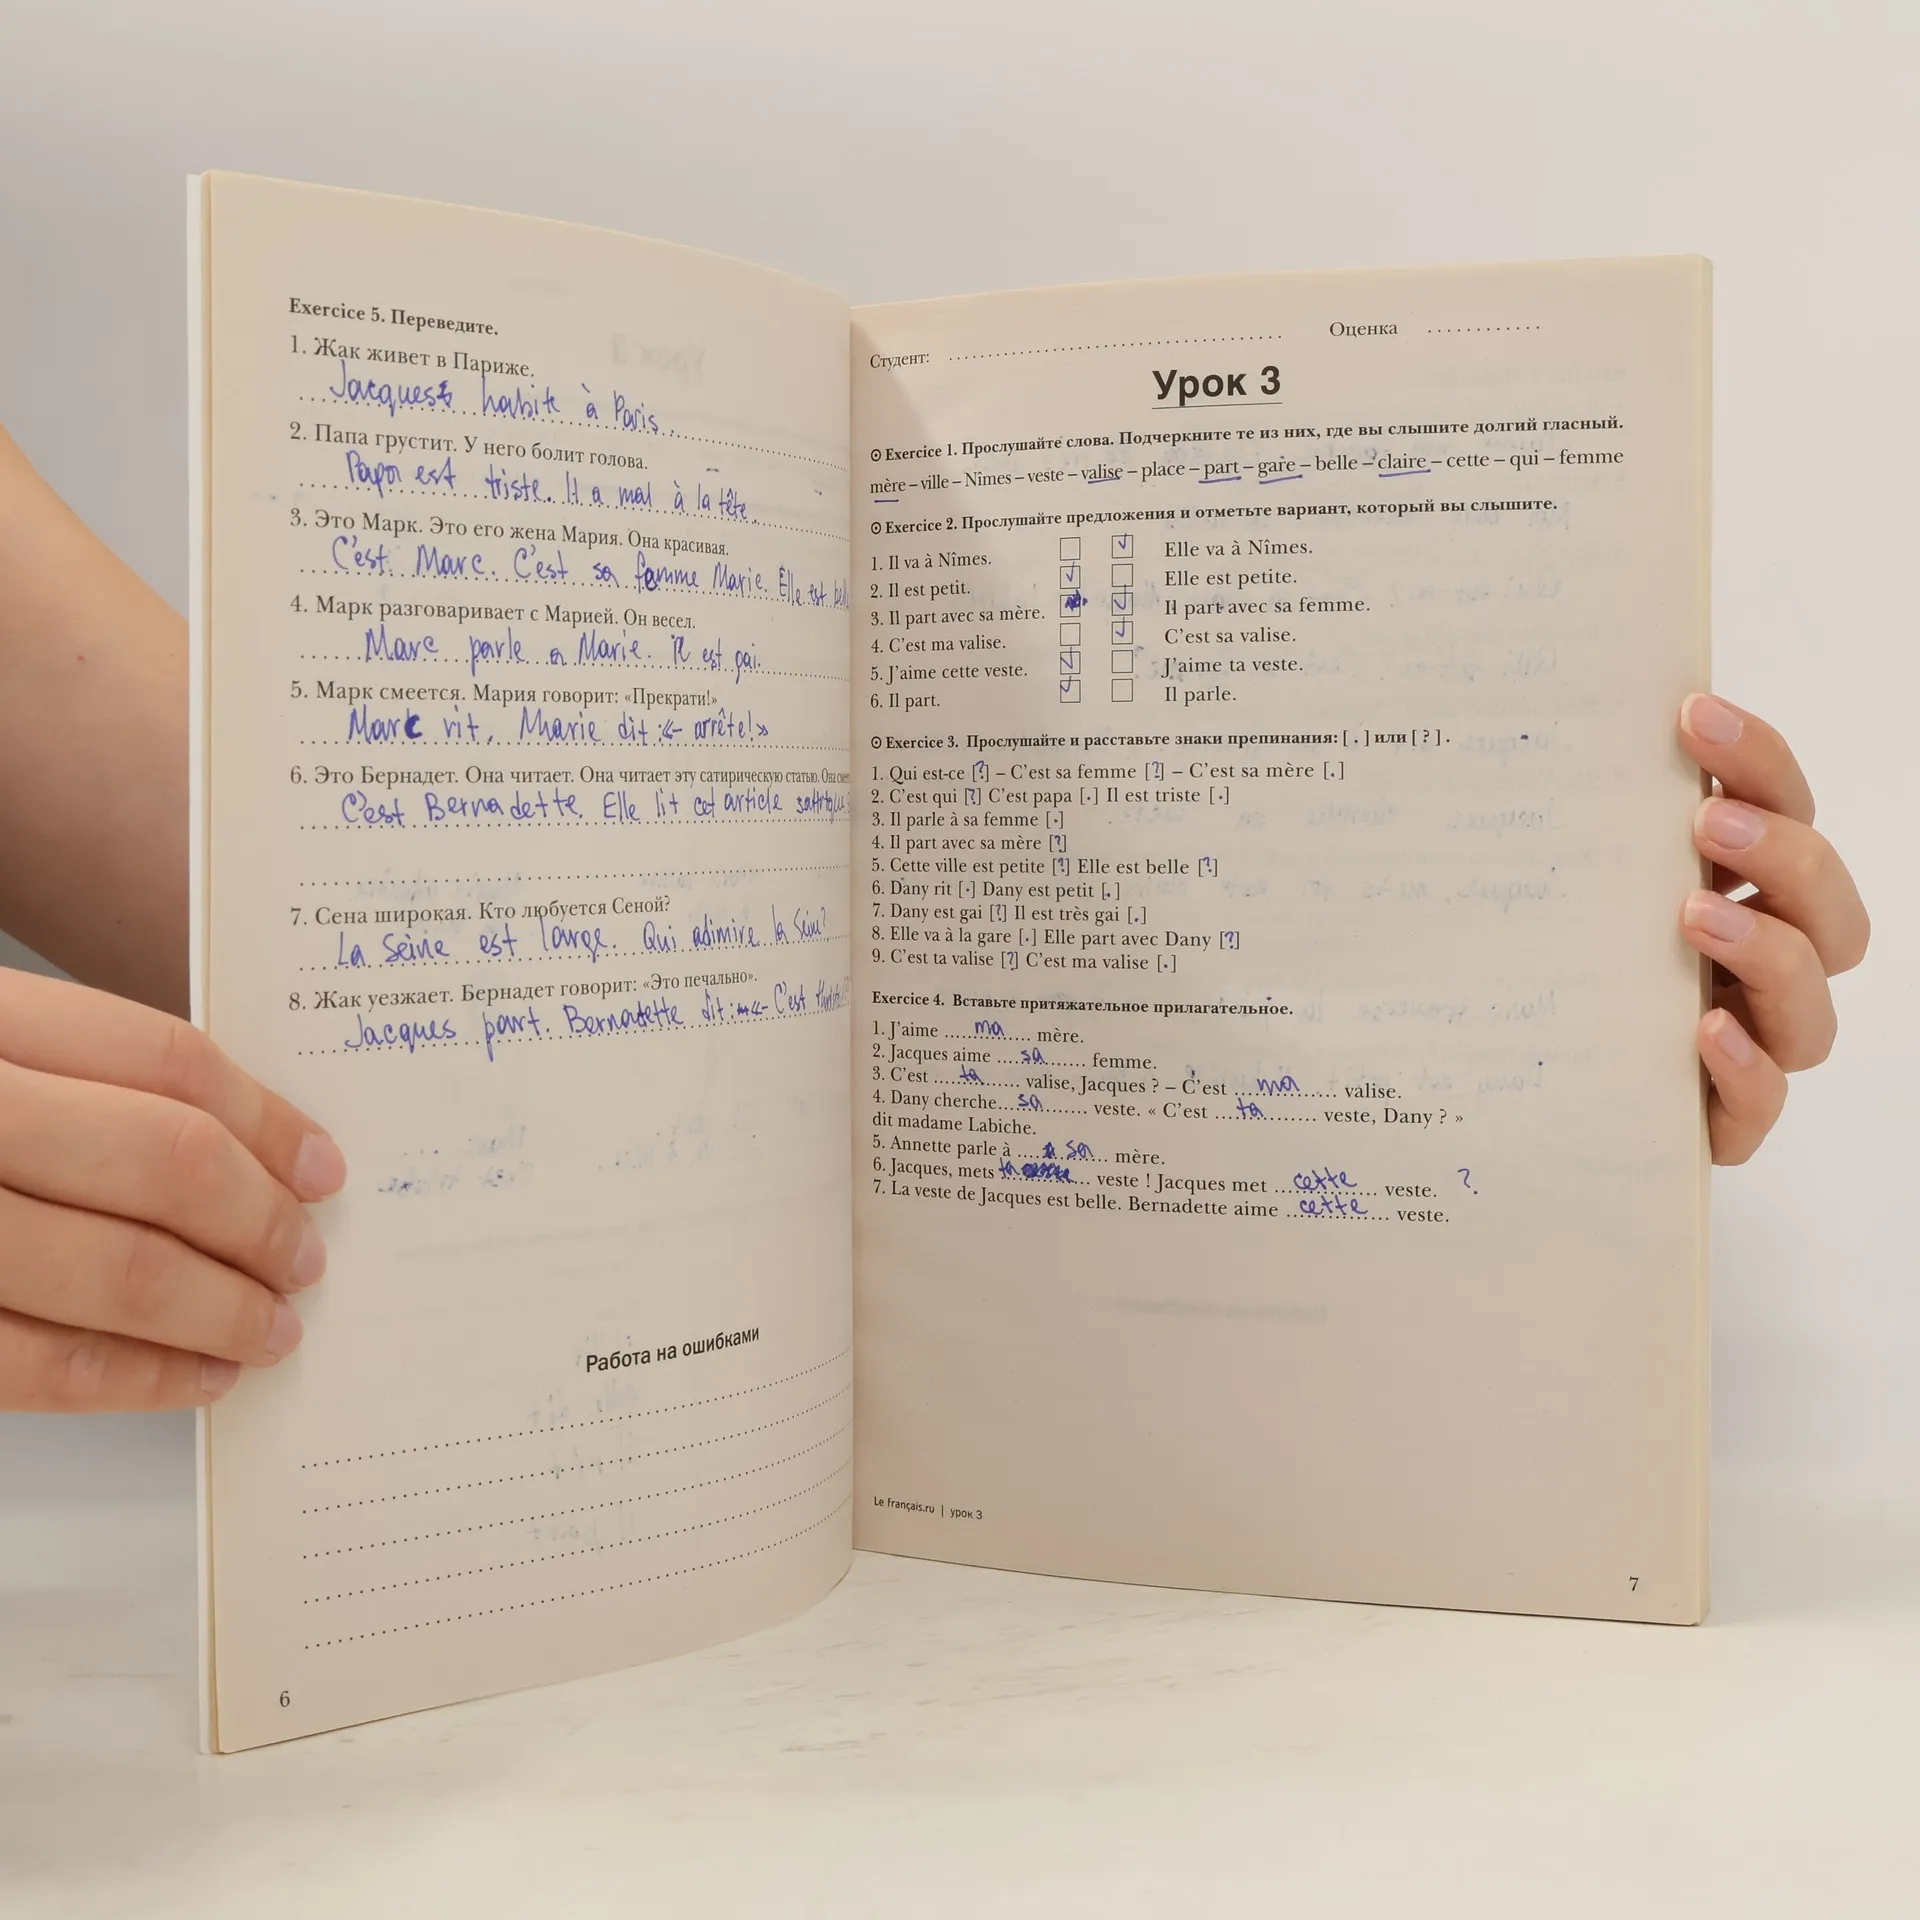 Exercice 5. Переведите.
1. Жак живет в Париже.
Jacques habite à Paris.
2. Папа грустит. У него болит голова.
Papa est triste. Il a mal à la tête.
3. Это Марк. Это его жена Мария. Она красивая.
C'est Marc. C'est sa femme Marie. Elle est
4. Марк разговаривает с Марией. Он весел.
Marc parle a Marie. Il est gai.
5. Марк смеется. Мария говорит: «Прекрати!»
Marc rit, Marie dit :«- arrête!»
6. Это Бернадет. Она читает. Она читает эту сатирическую статью. Она
C'est Bernadette. Elle lit cet article
7. Сена широкая. Кто любуется Сеной?
La Seine est large. Qui adimire la
8. Жак уезжает. Бернадет говорит: «Это печально».
Jacques part. Bernadette dit : «- C'est
Работа на ошибками
6
Студент: Оценка
Урок 3
Exercice 1. Прослушайте слова. Подчеркните те из них, где вы слышите долгий гласный.
mère – ville – Nîmes – veste – valise – place – part – gare – belle – claire – cette – qui – femme
Exercice 2. Прослушайте предложения и отметьте вариант, который вы слышите.
1. Il va à Nîmes. ✓ Elle va à Nîmes.
2. Il est petit. ✓ Elle est petite.
3. Il part avec sa mère. ✓ Il part avec sa femme.
4. C'est ma valise. ✓ C'est sa valise.
5. J'aime cette veste. ✓ J'aime ta veste.
6. Il part. ✓ Il parle.
Exercice 3. Прослушайте и расставьте знаки препинания: [ . ] или [ ? ] .
1. Qui est-ce [?] – C'est sa femme [?] – C'est sa mère [.]
2. C'est qui [?] C'est papa [.] Il est triste [.]
3. Il parle à sa femme [.]
4. Il part avec sa mère [?]
5. Cette ville est petite [?] Elle est belle [?]
6. Dany rit [.] Dany est petit [.]
7. Dany est gai [?] Il est très gai [.]
8. Elle va à la gare [.] Elle part avec Dany [?]
9. C'est ta valise [?] C'est ma valise [.]
Exercice 4. Вставьте притяжательное прилагательное.
1. J'aime ....ma.... mère.
2. Jacques aime ....sa.... femme.
3. C'est ....ta.... valise, Jacques ? – C'est ....ma.... valise.
4. Dany cherche....sa.... veste. « C'est ....ta.... veste, Dany ? »
dit madame Labiche.
5. Annette parle à ....sa.... mère.
6. Jacques, mets ta .... veste ! Jacques met ....cette.... veste. ?
7. La veste de Jacques est belle. Bernadette aime ....cette.... veste.
Le français.ru | урок 3
7